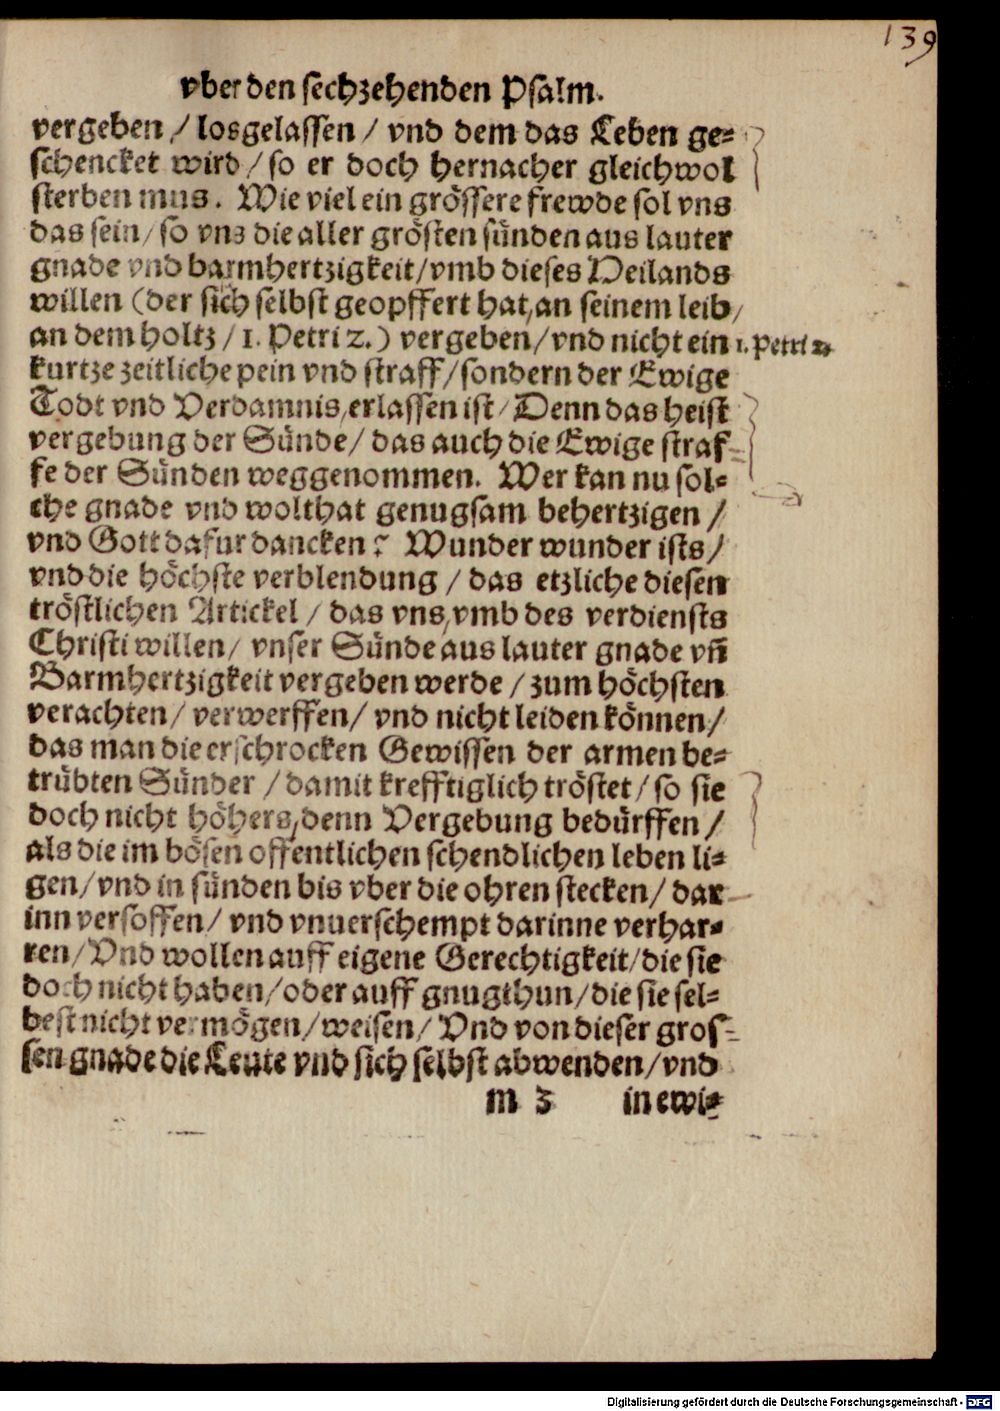 139
vber den sechzehenden Psalm.
vergeben / losgelassen / vnd dem das Leben ge-
schencket wird / so er doch hernacher gleichwol
sterben mus. Wie viel ein grössere frewde sol vns
das sein / so vns die aller grösten sünden aus lauter
gnade vnd barmhertzigkeit / vmb dieses Heilands
willen (der sich selbst geopffert hat, an seinem leib /
an dem holtz / 1. Petri 2.) vergeben / vnd nicht ein 1. Petri 2.
kurtze zeitliche pein vnd straff / sondern der Ewige
Todt vnd Verdamnis, erlassen ist / Denn das heist
vergebung der Sünde / das auch die Ewige straf-
fe der Sünden weggenommen. Wer kan nu sol-
che gnade vnd wolthat genugsam behertzigen /
vnd Gott dafur dancken? Wunder wunder ists /
vnd die höchste verblendung / das etzliche diesen
tröstlichen Artickel / das vns, vmb des verdiensts
Christi willen / vnser Sünde aus lauter gnade vñ
Barmhertzigkeit vergeben werde / zum höchsten
verachten / verwerffen / vnd nicht leiden können /
das man die erschrocken Gewissen der armen be-
trübten Sünder / damit krefftiglich tröstet / so sie
doch nicht höhers, denn Vergebung bedürffen /
als die im bösen offentlichen schendlichen leben li-
gen / vnd in sünden bis vber die ohren stecken / dar
inn versoffen / vnd vnuerschempt darinne verhar-
ren / Vnd wollen auff eigene Gerechtigkeit / die sie
doch nicht haben / oder auff gnugthun / die sie sel-
best nicht vermögen / weisen / Vnd von dieser gros-
sen gnade die Leute vnd sich selbst abwenden / vnd
m 3 in ewi-
Digitalisierung gefördert durch die Deutsche Forschungsgemeinschaft - DFG